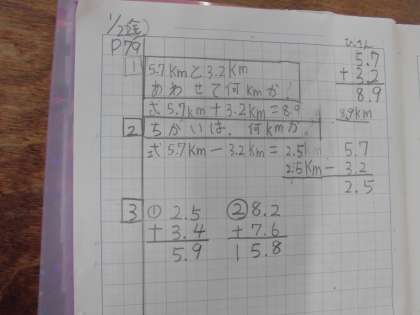 P79
1
5.7kmと3.2km
あわせて何kmか。
式 5.7km+3.2km=8.9
ひっさん
5.7
+3.2
8.9
8.9km
2
ちがいは、何kmか。
式 5.7km-3.2km=2.5
2.5km
5.7
-3.2
2.5
3
① 2.5
+3.4
5.9
② 8.2
+7.6
15.8